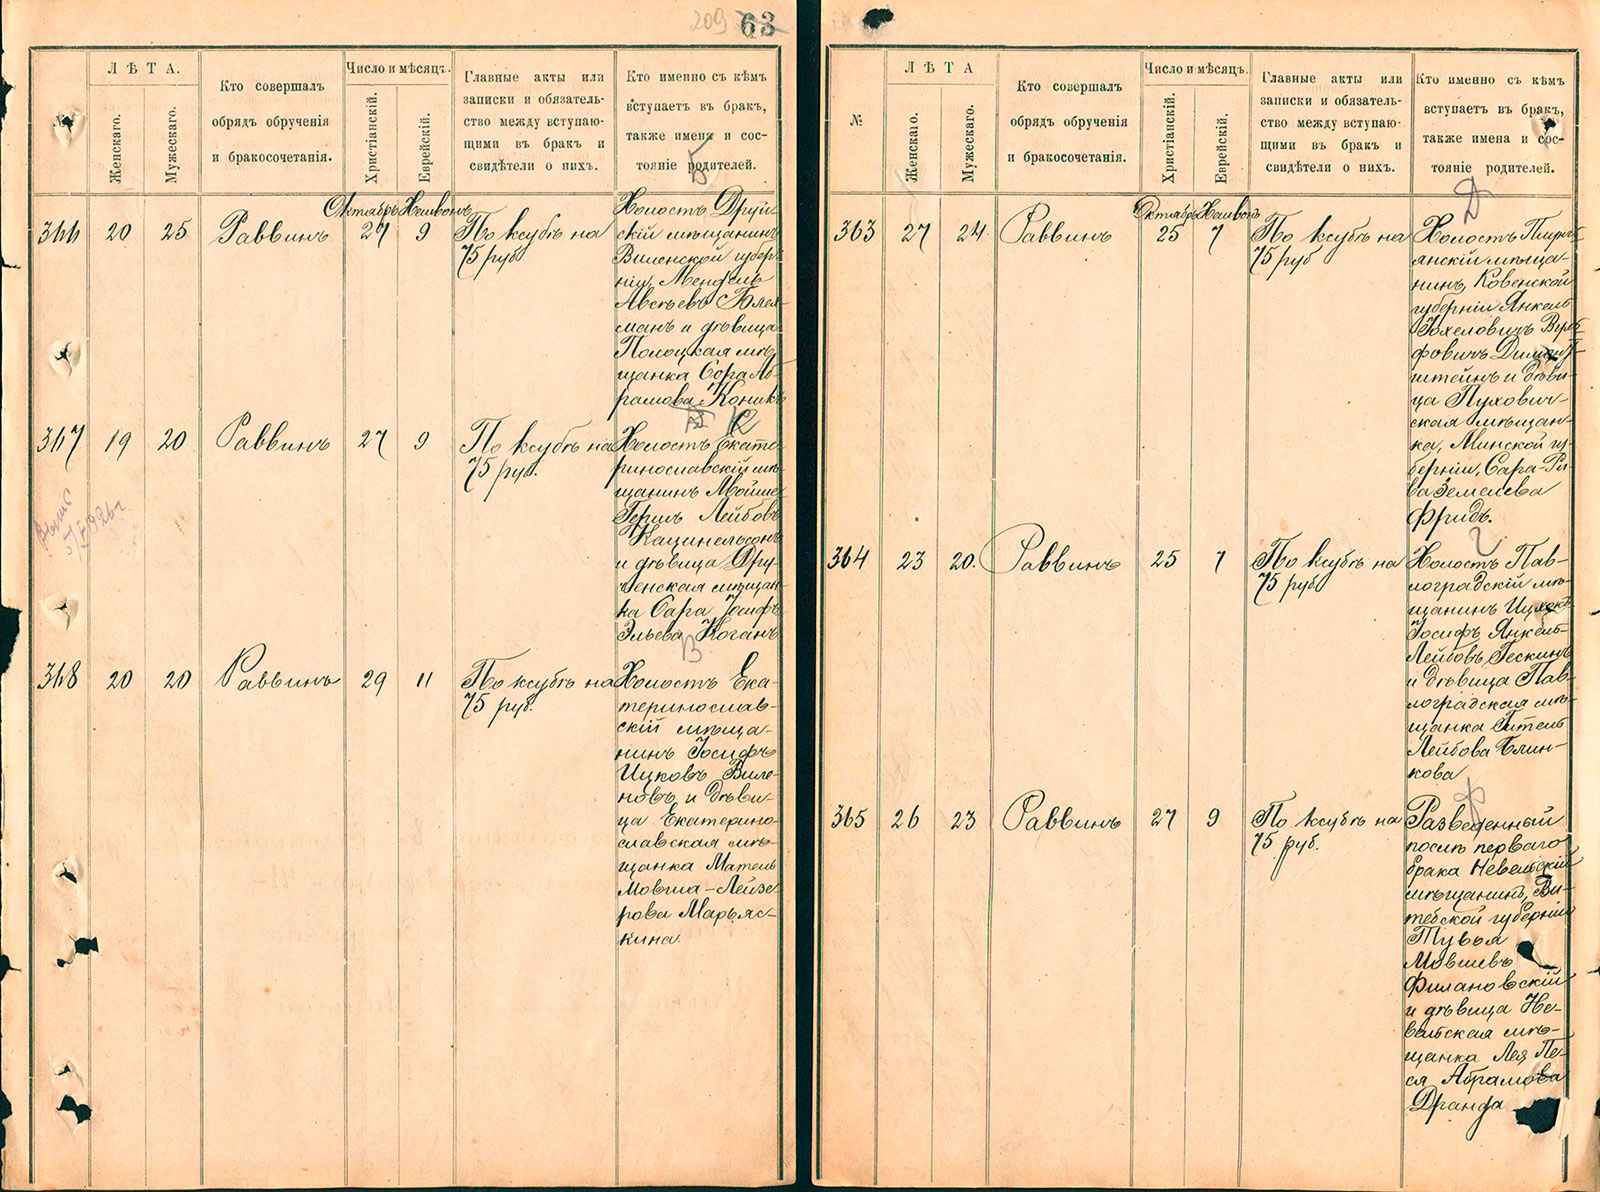 209 63
ЛѢТА.
Женскаго.
Мужескаго.
Кто совершалъ
обрядъ обрученія
и бракосочетанія.
Число и мѣсяцъ.
Христіанскій.
Еврейскій.
Главные акты или
записки и обязатель-
ство между вступаю-
щими въ бракъ и
свидѣтели о нихъ.
Кто именно съ кѣмъ
вступаетъ въ бракъ,
также имена и сос-
тояніе родителей.
Б
Октябрь Хешвонъ
366 20 25 Раввинъ 27 9 По ксубѣ на
75 руб
Холостъ Друй-
скій мѣщанинъ
Виленской губер-
ніи, Мендель
Авсѣевъ
манъ и дѣвица
Полоцкая мѣ-
щанка Сора Аб-
рамова Коникъ
К
367 19 20 Раввинъ 27 9 По ксубѣ на
75 руб.
Холостъ Екате-
ринославскій мѣ-
щанинъ Мойше-
Герцъ Лейбовъ
Кацнельсонъ
и дѣвица Дру-
ченская мѣщан-
ка Сара Іосифъ-
Эльева Коганъ
В
368 20 20 Раввинъ 29 11 По ксубѣ на
75 руб.
Холостъ Ека-
теринослав-
скій мѣща-
нинъ Іосифъ
Ицковъ Виле-
новъ и дѣви-
ца Екатерино-
славская мѣ-
щанка Матель
Мовша-Лейзе-
рова Марьяс-
кина.
№
ЛѢТА
Женскаго.
Мужескаго.
Кто совершалъ
обрядъ обрученія
и бракосочетанія.
Число и мѣсяцъ.
Христіанскій.
Еврейскій.
Главные акты или
записки и обязатель-
ство между вступаю-
щими въ бракъ и
свидѣтели о нихъ.
Кто именно съ кѣмъ
вступаетъ въ бракъ,
также имена и сос-
тояніе родителей.
Д
Октябрь Хешвонъ
363 27 24 Раввинъ 25 7 По ксубѣ на
75 руб
Холостъ
янскій мѣща-
нинъ, Ковенской
губерніи Янкель
Іохеловичъ
фовичъ Димант-
штейнъ и дѣви-
ца Пухович-
ская мѣщан-
ка, Минской гу-
берніи, Сара-Ри-
ва Земелева
Фридъ.
Г
364 23 20. Раввинъ 25 7 По ксубѣ на
75 руб
Холостъ Пав-
лоградскій мѣ-
щанинъ Ицхокъ
Іосифъ Янкель-
Лейбовъ Гескинъ
и дѣвица Пав-
лоградская мѣ-
щанка Гитель
Лейбова Блин-
кова
Ф
365 26 23 Раввинъ 27 9 По ксубѣ на
75 руб.
Разведенный
послѣ перваго
брака Невельскій
мѣщанинъ, Ви-
тебской губерніи
Тувья
Мовшевъ
Филановскій
и дѣвица Не-
вельская мѣ-
щанка Лея Пе-
ся Абрамова
Дранда